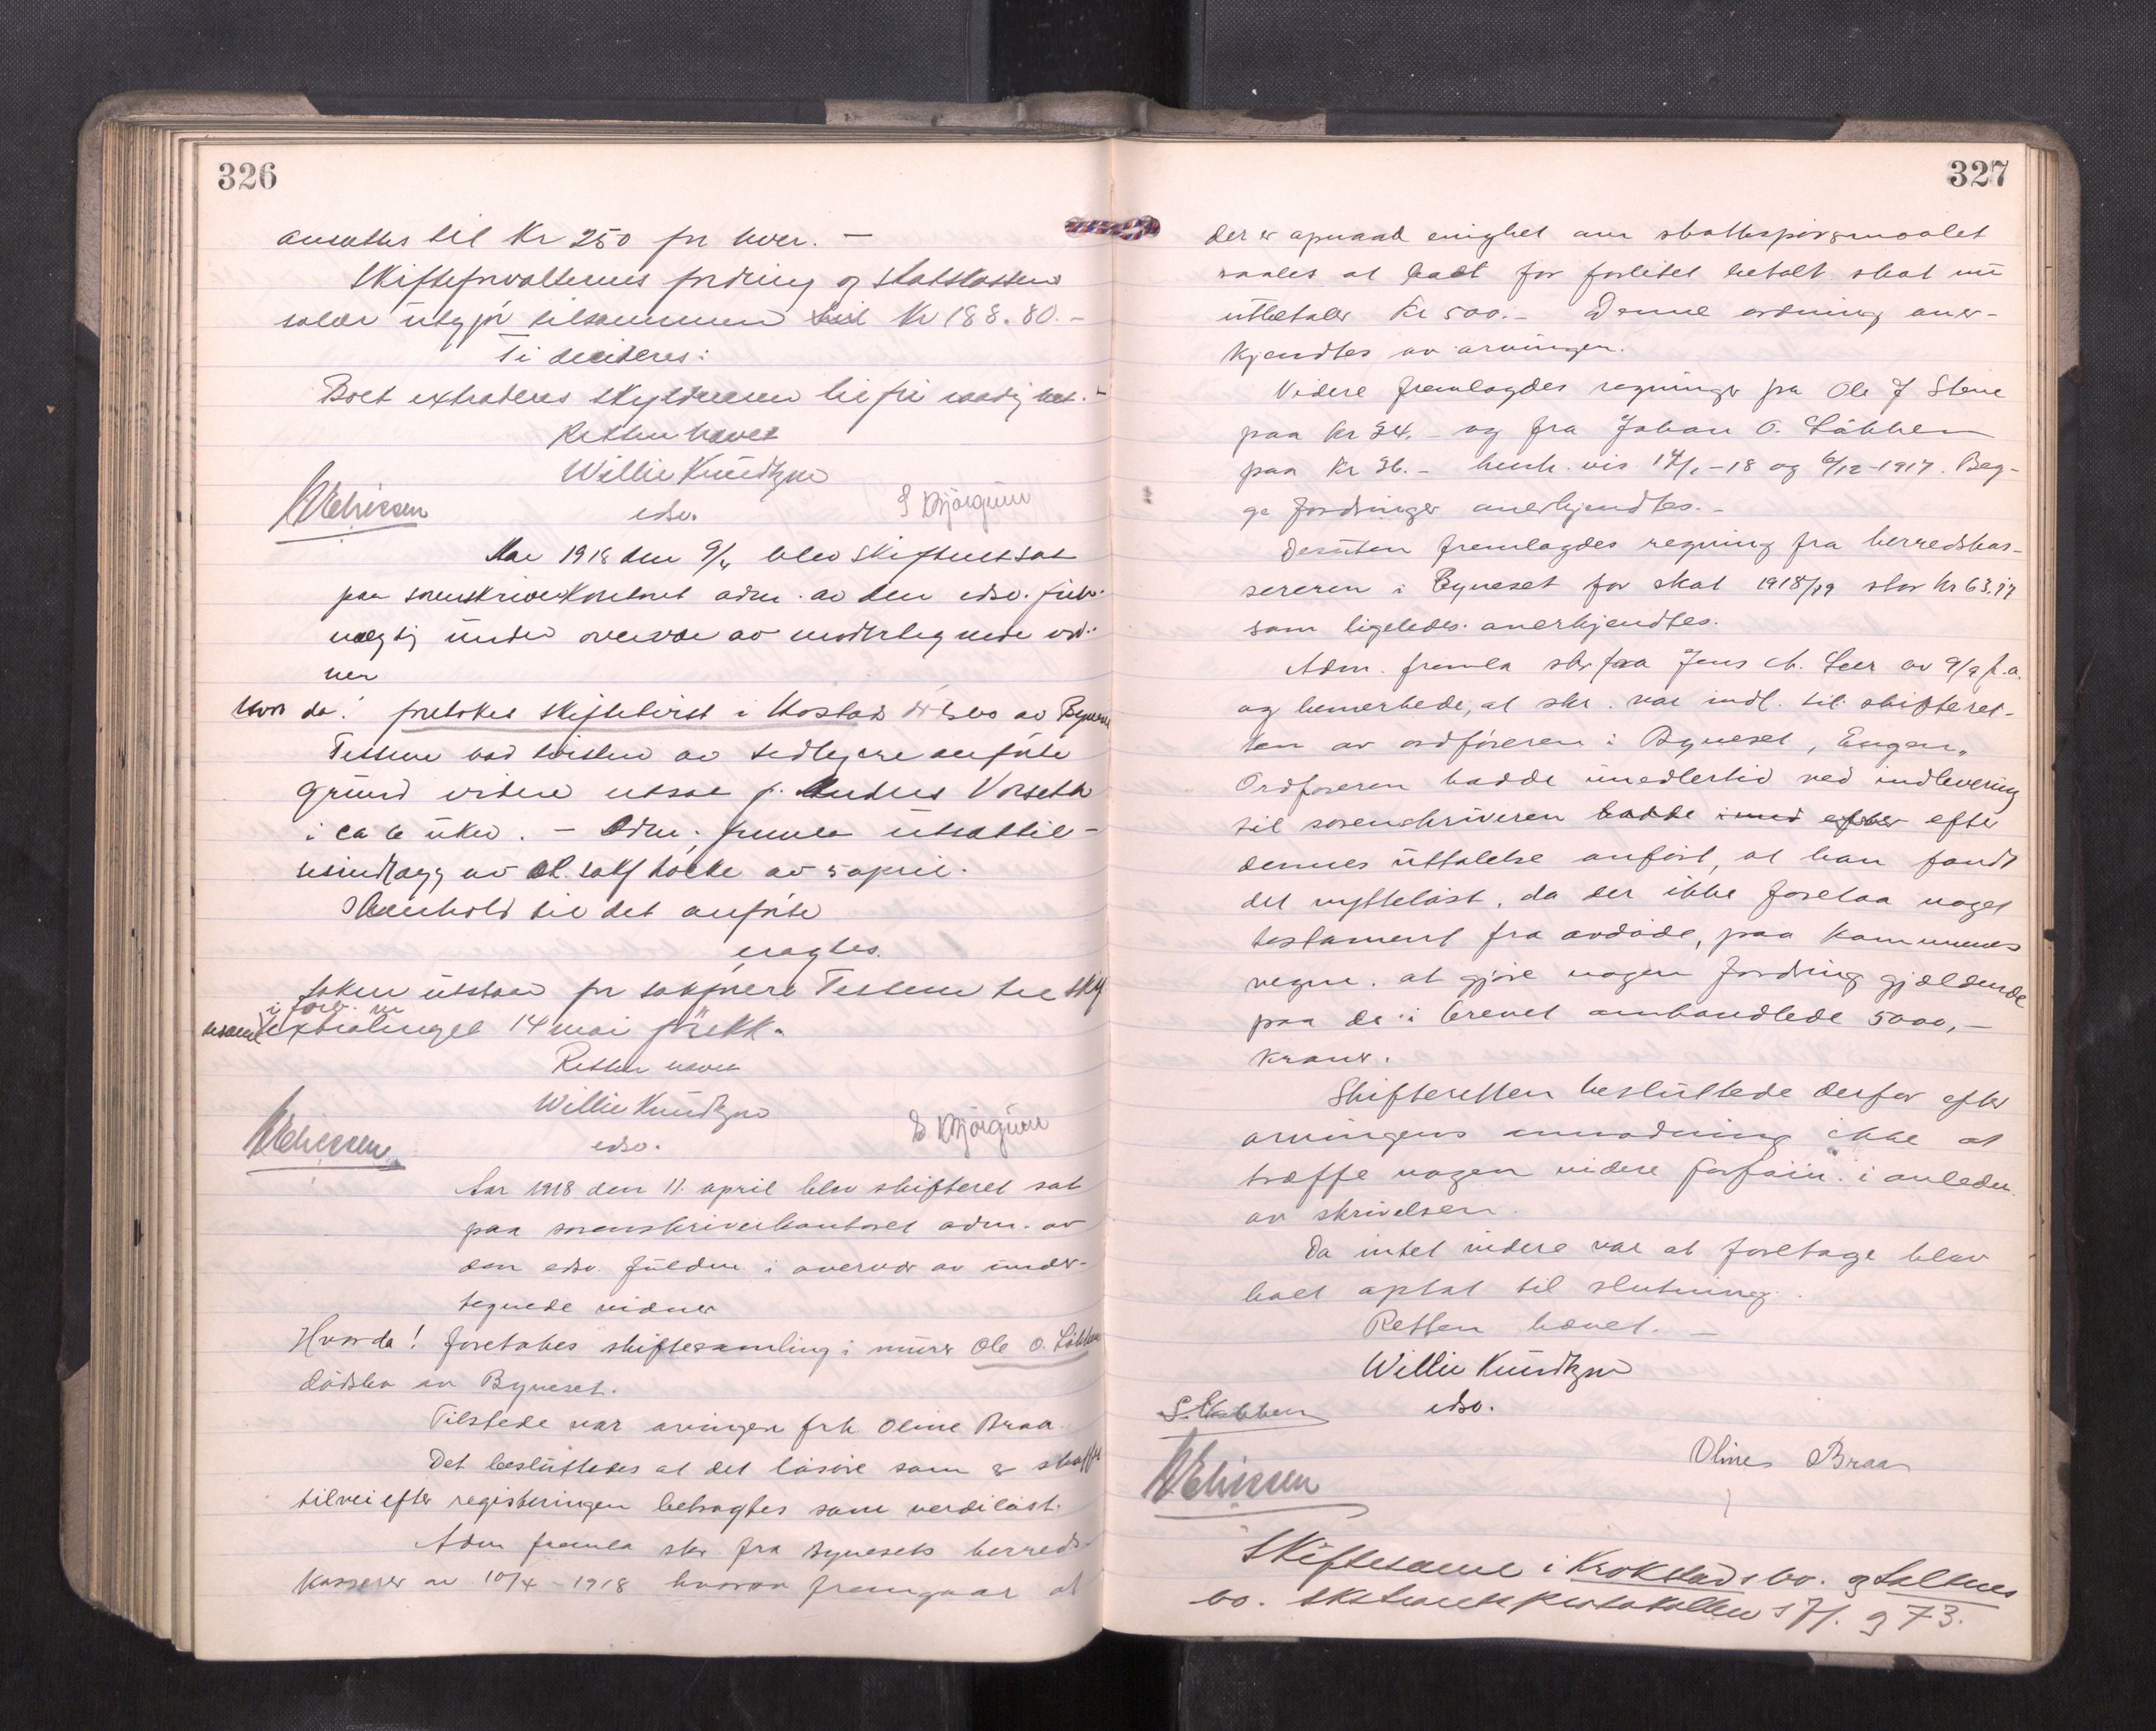 326
ansattes til Kr 250 for hver. –
Skifteforvalterens fordring og Statskassens
salær utgjør tilsammen Kr 188.80. –
Ti decideres:
Boet extraderes skyldneren til fri raadighet. –
Retten hævet
Willie Knudtzon
edsv.
S Bjørgum
Aar 1918 den 9/4 blev skifteret sat
paa sorenskriverkontoret adm. av den edsv. fuld-
mægtig under overvær av undertegnede vid-
ner
Hvor da! foretokes skiftetvist i bo av Bynes
Tessem bad tvisten av tidligere anførte
grund videre utsat p. Anders Vorseth
i ca 6 uker. – Adm. fremla utsættel-
sesindlægg av O.r. sakf av 5 april.
I henhold til det anførte
eragtes.
Saken utstaar for sakfører Tessem til
14 mai
Retten hævet
Willie Knudtzon
edsv.
S Bjørgum
Aar 1918 den 11. april blev skifteret sat
paa sorenskriverkontoret adm. av
den edsv. fuldm. i overvær av under-
tegnede vidner
Hvorda! foretokes skiftesamling i Ole O. Løkken
dødsbo av Byneset.
Tilstede var arvingen frk Oline Braa.
Det besluttedes at det løsøre som er skaffet
tilvei efter registeringen betragtes som verdiløst.
Adm fremla skr fra Bynesets herreds-
kasserer av 10/4 – 1918 hvorav fremgaar at
327
der er opnaad enighet om skattespørsmaalet
saales at boet for forlitet betalt skat nu
utbetaler Kr 500.– Denne ordning aner-
kjendtes av arvingen.
Videre fremlagdes regninger fra Ole J Stene
paa Kr 24.– og fra Johan O. Løkken
paa Kr 36.– henh.vis 14/1–18 og 6/12–1917. Beg-
ge fordringer anerkjendtes.–
Desuten fremlagdes regning fra herredskas-
sereren i Byneset for skat 1918/19 stor Kr 63.
som ligeledes anerkjendtes.
Adm. fremla skr fra Jens M. Leer av 9/2 f.a.
og bemerkede, at skr. var indl. til skifteret-
ten av ordføreren i Byneset, Engen.
Ordføreren hadde imedlertid ved indlevering
til sorenskriveren hadde efter
dennes uttalelse anført, at han fandt
det nytteløst, da der ikke forelaa noget
testament fra avdøde, paa kommunens
vegne at gjøre nogen fordring gjældende
paa de i brevet omhandlede 5000,–
kroner.
Skifteretten besluttede derfor efter
arvingens anmodning ikke at
træffe nogen videre forføin. i anledn.
av skrivelsen.
Da intet videre var at foretage blev
boet optat til slutning.
Retten hævet. –
Willie Knudtzon
edsv.
Oline Braa
Skiftesaml i Krokstads bo. og Saltnes
bo. protokollen s 71. og 73.